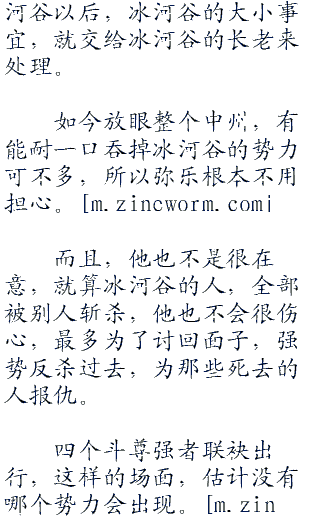 河谷以后，冰河谷的大小事
宜，就交给冰河谷的长老来
处理。
如今放眼整个中州，有
能耐一口吞掉冰河谷的势力
可不多，所以弥乐根本不用
担心。[m.zincworm.com]
而且，他也不是很在
意，就算冰河谷的人，全部
被别人斩杀，他也不会很伤
心，最多为了讨回面子，强
势反杀过去，为那些死去的
人报仇。
四个斗尊强者联袂出
行，这样的场面，估计没有
哪个势力会出现。[m.zin